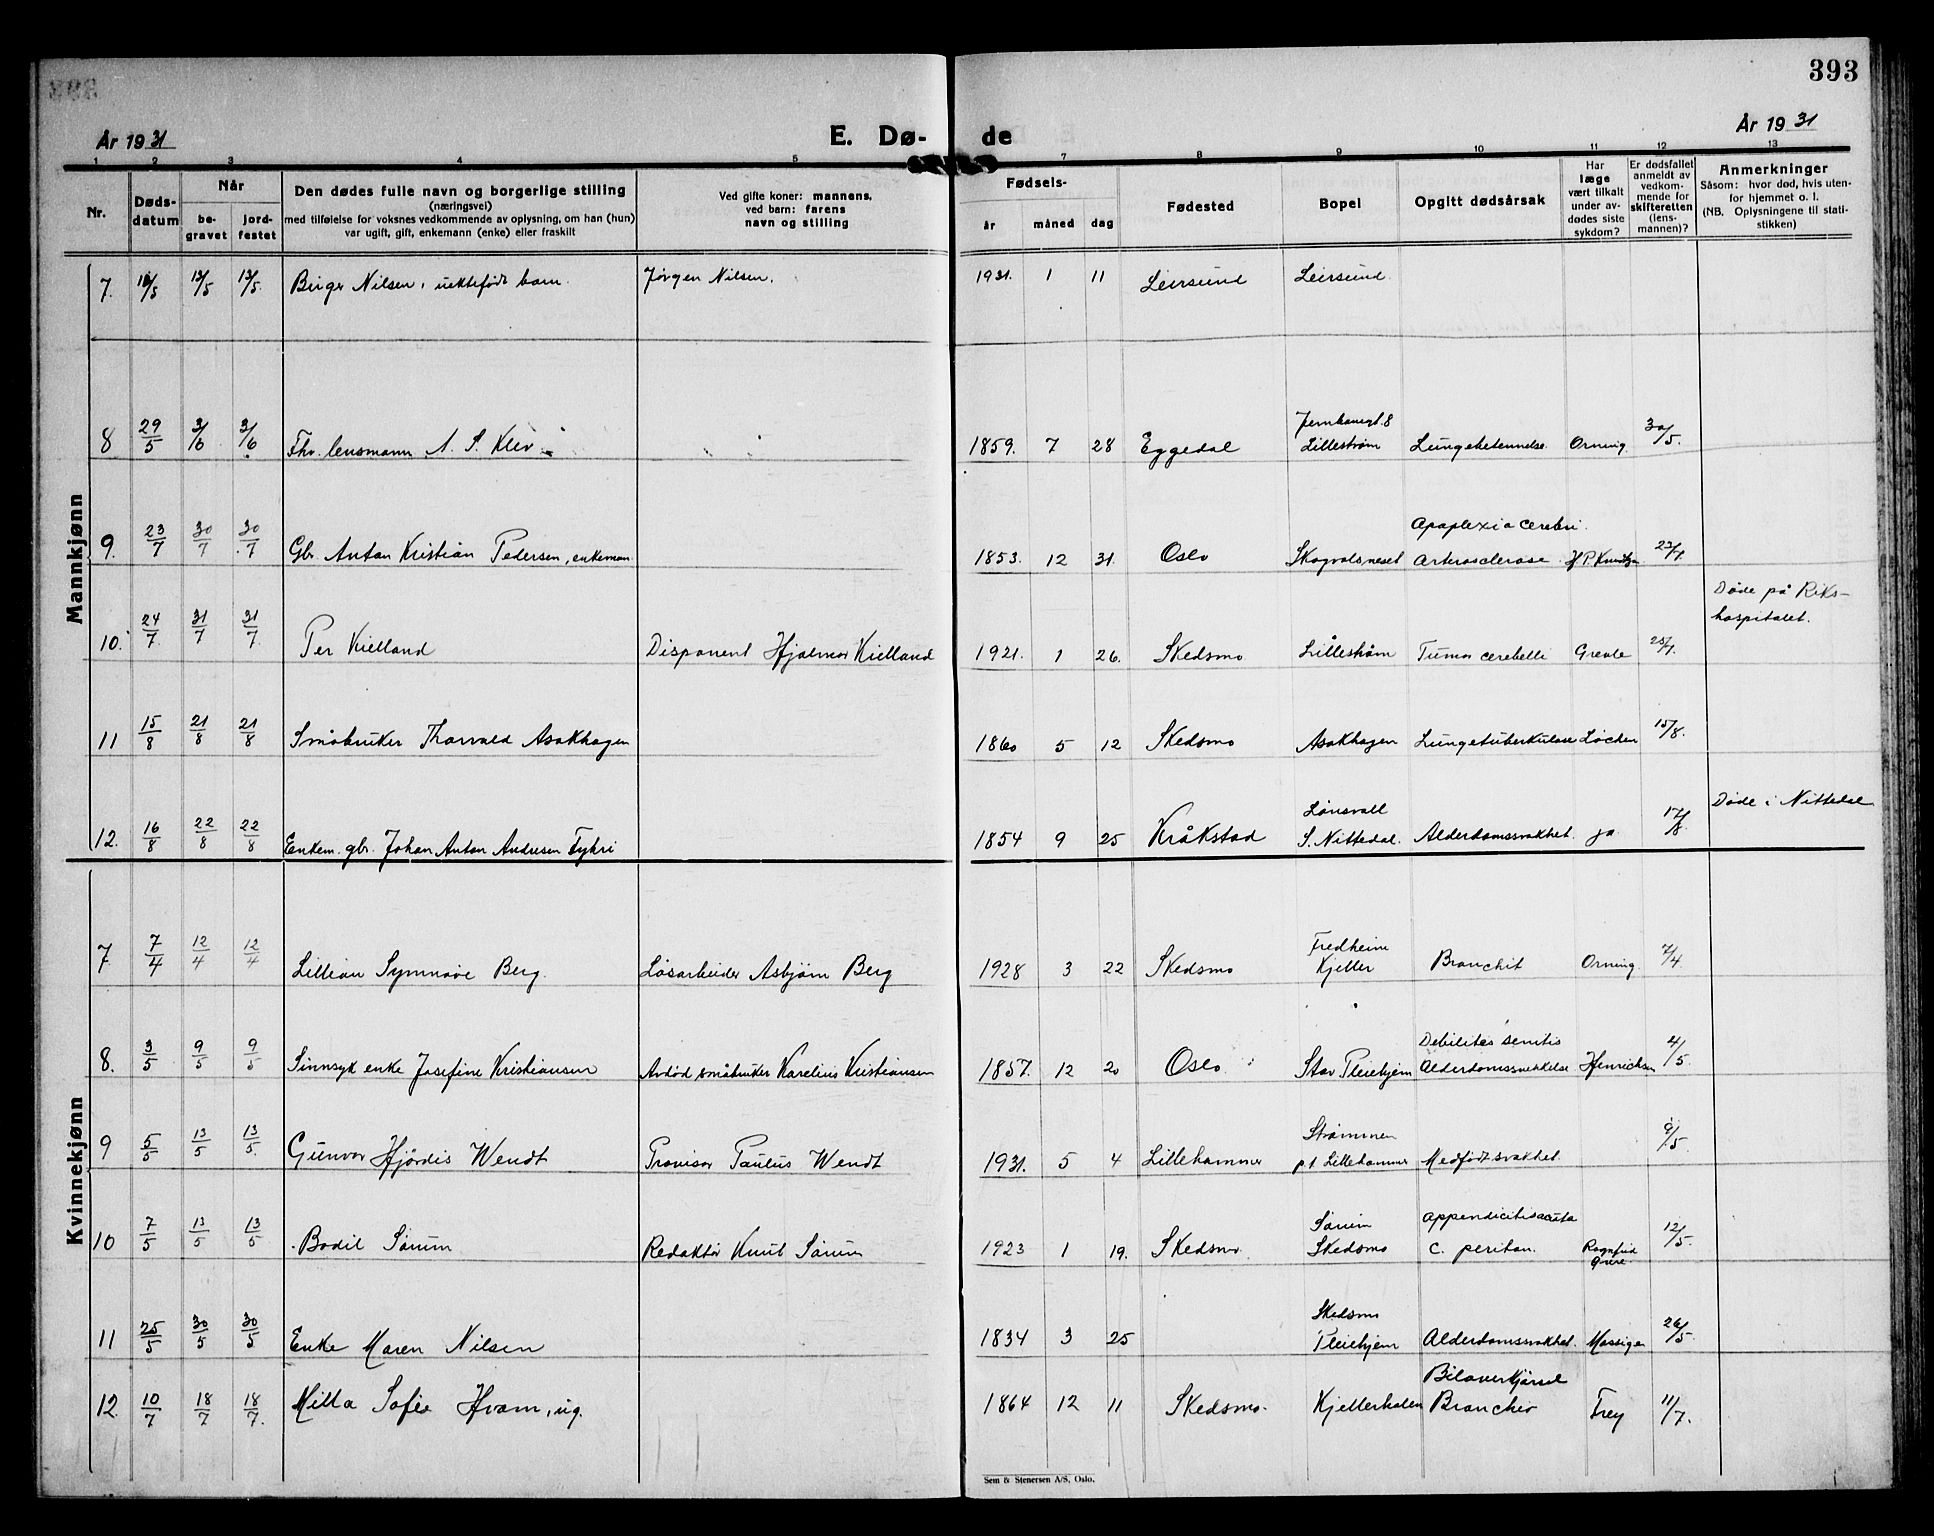 393
År 1931 E. Dø- de År 1931
1 2 3 4 5 7 8 9 10 11 12 13
Nr. Dødsdatum Når begravet jordfestet
Den dødes fulle navn og borgerlige stilling
(næringsvei)
med tilføielse for voksnes vedkommende av oplysning, om han (hun)
var ugift, gift, enkemann (enke) eller fraskilt
Ved gifte koner: mannens,
ved barn: farens
navn og stilling
Fødsels- år måned dag
Fødested
Bopel
Opgitt dødsårsak
Har
læge
vært tilkalt
under avdødes siste
sykdom?
Er dødsfallet
anmeldt av
vedkommende for
skifteretten
(lensmannen)?
Anmerkninger
Såsom: hvor død, hvis utenfor hjemmet o. l.
(NB. Oplysningene til statistikken)
Mannkjønn
7. 10/5 13/5 13/5. Birger Nilsen, uektefødt barn. Jørgen Nilsen. 1931. 1 11 Leirsund Leirsund.
8 29/5 3/6 3/6 Fhv. lensmann A. S. Klev 1859. 7 28 Eggedal Jernbanegt. 8 Lillestrøm Lungebetennelse Orning. 30/5.
9. 23/7 30/7 30/7 Gbr. Anton Kristian Pedersen, enkeman 1853. 12 31. Oslo Skogvolsneset Apoplexia cerebri. Arterosclerose 23/7.
10. 24/7 31/7 31/7. Per Kielland Disponent Hjalmar Kielland 1921. 1 26. Skedsmo Lillestrøm Tumor cerebelli 25/7. Døde på Rikshospitalet.
11 15/8 21/8 21/8 Småbruker Thorvald Asakhagen 1860 5 12 Skedsmo Asakhagen Lungetuberkulose Løchen 15/8.
12. 16/8 22/8 22/8 Enkem. gbr. Johan Anton Andresen Fykri 1854 9 25 Kråkstad S. Nittedal. Alderdomssvakhet. ja 17/8. Døde i Nittedal
Kvinnekjønn
7 7/4 12/4 12/4 Lillian Synnøve Berg. Løsarbeider Asbjørn Berg 1928 3 22 Skedsmo Fredheim Kjeller Bronchit Orning. 7/4
8. 3/5 9/5 9/5 Sinnsyk enke Josefine Kristiansen Avdød småbruker Karelius Kristiansen 1857. 12 20 Oslo. Stav Pleiehjem Debilitas senilis Alderdomssvekkelse Hinrichsen 4/5.
9 5/5 13/5 13/5. Gunvor Hjørdis Wendt Provisor Paulus Wendt 1931. 5 4 Lillehammer Strømmen p.t. Lillehammer Medfødt svakhet. 9/5
10 7/5 13/5 13/5 Bodil Sørum Redaktør Knut Sørum 1923 1 19. Skedsmo. Sørum Skedsmo Appendicitis acuta c. periton. Ragnfrid 12/5.
11 25/5 30/5 30/5 Enke Maren Nilsen 1834 3 25 Skedsmo Pleiehjem Alderdomssvakhet. 26/5.
12. 10/7 18/7 18/7. Milla Sofie Hvam, ug. 1864 12 11 Skedsmo. Kjellerholen Biloverkjørsel Frey 11/7.
Sem & Stenersen A/S, Oslo.